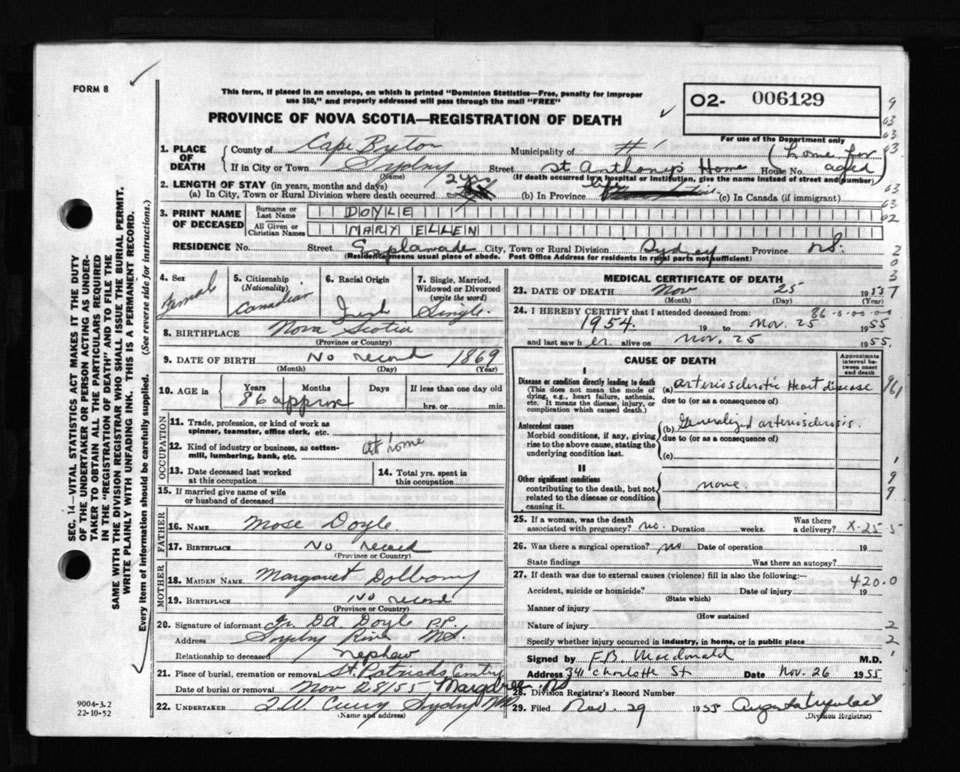 FORM 8
This form, if placed in an envelope, on which is printed "Dominion Statistics—Free, penalty for improper
use $50," and properly addressed will pass through the mail "FREE"
PROVINCE OF NOVA SCOTIA—REGISTRATION OF DEATH
02- 006129
For use of the Department only
1. PLACE OF DEATH
County of Cape Bryton Municipality of #1
If in City or Town Sydny Street St Anthonys Home House No. (home for aged)
(Name) (If death occurred in a hospital or institution, give the name instead of street and number)
2. LENGTH OF STAY (in years, months and days)
(a) In City, Town or Rural Division where death occurred 2 yrs (b) In Province life (c) In Canada (if immigrant)
3. PRINT NAME OF DECEASED
Surname or Last Name DOYLE
All Given or Christian Names MARY ELLEN
RESIDENCE No. Street Esplanade City, Town or Rural Division Sydney Province N.S.
(Residence means usual place of abode. Post Office Address for residents in rural parts not sufficient)
4. Sex Female
5. Citizenship (Nationality) Canadian
6. Racial Origin Irish
7. Single, Married, Widowed or Divorced (write the word) Single
8. BIRTHPLACE Nova Scotia
(Province or Country)
9. DATE OF BIRTH No record 1869
(Month) (Day) (Year)
10. AGE in Years Months Days If less than one day old
86 approx hrs. or min.
OCCUPATION
11. Trade, profession, or kind of work as spinner, teamster, office clerk, etc.
12. Kind of industry or business, as cotten-mill, lumbering, bank, etc. at home
13. Date deceased last worked at this occupation
14. Total yrs. spent in this occupation
15. If married give name of wife or husband of deceased
FATHER
16. NAME Mose Doyle
17. BIRTHPLACE No record
(Province or Country)
MOTHER
18. MAIDEN NAME Margaret
19. BIRTHPLACE No record
(Province or Country)
20. Signature of informant Fr. D.A Doyle P.P.
Address Sydny River N.S.
Relationship to deceased nephew
21. Place of burial, cremation or removal St. Patricks Cemtry
Date of burial or removal Nov 28/55 Margaree NS
22. UNDERTAKER T.W. Curry Sydny NS
(Name and address)
MEDICAL CERTIFICATE OF DEATH
23. DATE OF DEATH Nov 25 1955
(Month) (Day) (Year)
24. I HEREBY CERTIFY that I attended deceased from: 86-0-00-00
1954 19 to Nov. 25 1955
and last saw her alive on Nov. 25 1955.
CAUSE OF DEATH
Approximate interval between onset and death
I
Disease or condition directly leading to death
(This does not mean the mode of dying, e.g., heart failure, asthenia, etc. It means the disease, injury, or complication which caused death.)
(a) arteriosclerotic Heart disease
due to (or as a consequence of)
Antecedent causes
Morbid conditions, if any, giving rise to the above cause, stating the underlying condition last.
(b) Generalized arteriosclerosis.
due to (or as a consequence of)
(c)
II
Other significant conditions
contributing to the death, but not related to the disease or condition causing it.
none
25. If a woman, was the death associated with pregnancy? no. Duration weeks. Was there a delivery? X-25 5
26. Was there a surgical operation? no Date of operation 19
State findings Was there an autopsy?
27. If death was due to external causes (violence) fill in also the following:— 420.0
Accident, suicide or homicide? Date of injury 19
(State which)
Manner of injury
(How sustained
Nature of injury
Specify whether injury occurred in industry, in home, or in public place
Signed by F.B. Macdonald M.D.
Address 341 Charlotte St Date Nov. 26 1955
28. Division Registrar's Record Number
29. Filed Nov. 29 1955
(Division Registrar)
9004-3.2
22-10-52
SEC. 14—VITAL STATISTICS ACT MAKES IT THE DUTY
OF THE UNDERTAKER OR PERSON ACTING AS UNDER-
TAKER TO OBTAIN ALL THE PARTICULARS REQUIRED
IN THE "REGISTRATION OF DEATH" AND TO FILE THE
SAME WITH THE DIVISION REGISTRAR WHO SHALL ISSUE THE BURIAL PERMIT.
WRITE PLAINLY WITH UNFADING INK. THIS IS A PERMANENT RECORD.
Every item of information should be carefully supplied. (See reverse side for instructions.)